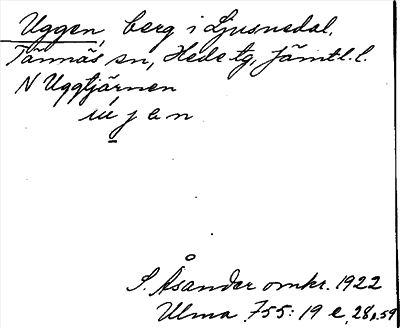 Uggen, berg i Ljusnedal,
Tännäs sn, Hede tg, Jämtl. l.
N Uggtjärnen
S. Åsander omkr. 1922
Ulma 755:19 e, 28, 59